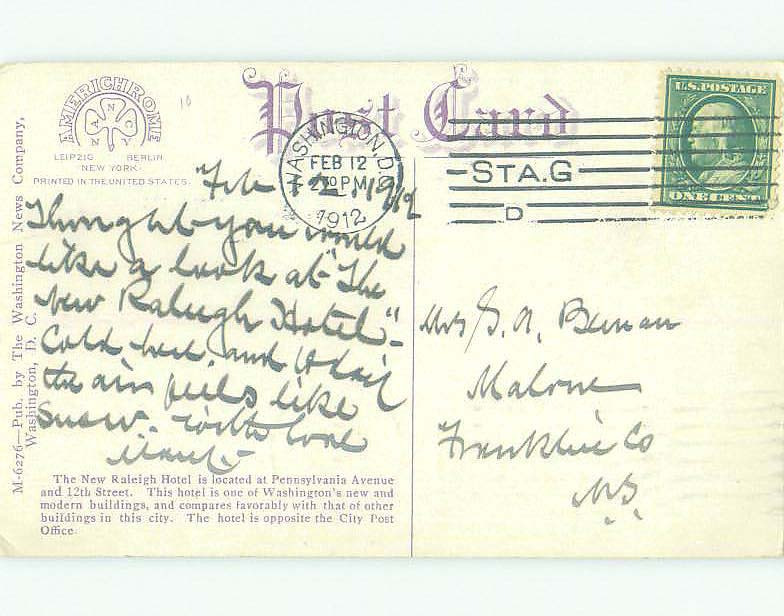 AMERICHROME
ANCNY
LEIPZIG BERLIN
NEW YORK.
PRINTED IN THE UNITED STATES.
Post Card
WASHINGTON, D.C.
FEB 12
2 30 PM
1912
STA.G
D
U.S. POSTAGE
ONE CENT
M-6276—Pub. by The Washington News Company,
Washington, D. C.
10
Feb 12, 1912
Thought you would
like a look at "The
New Raleigh Hotel"-
Cold here and
the air feels like
Snow. With love
Mrs
Malone
Franklin Co
N.Y.
The New Raleigh Hotel is located at Pennsylvania Avenue
and 12th Street. This hotel is one of Washington's new and
modern buildings, and compares favorably with that of other
buildings in this city. The hotel is opposite the City Post
Office.